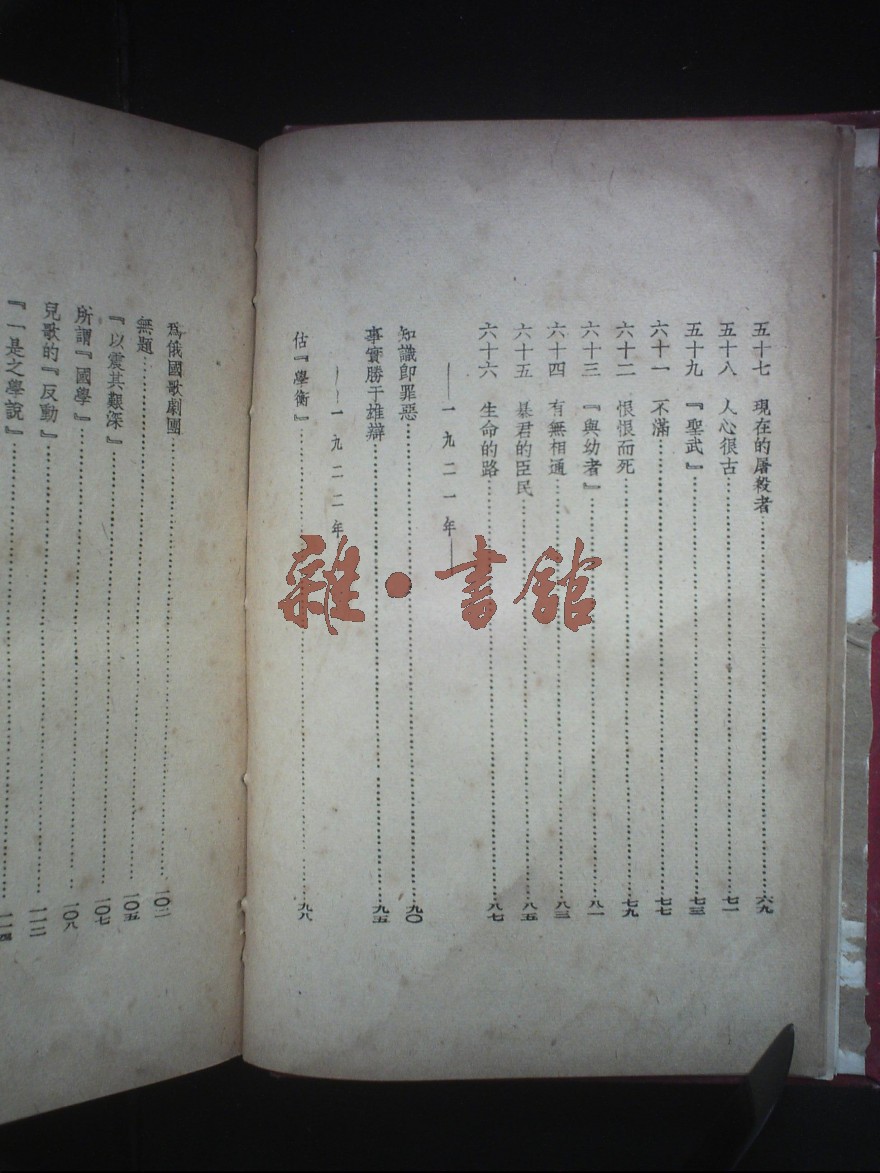 五十七　現在的屠殺者……六九
五十八　人心很古……七一
五十九　『聖武』……七三
六十一　不滿……七七
六十二　恨恨而死……七九
六十三　『與幼者』……八一
六十四　有無相通……八三
六十五　暴君的臣民……八五
六十六　生命的路……八七
——一九二一年——
知識卽罪惡……九〇
事實勝于雄辯……九五
——一九二二年
估『學衡』……九八
爲俄國歌劇團……一〇二
無題……一〇五
『以震其艱深』……一〇七
所謂『國學』……一〇八
兒歌的『反動』……一一二
『一是之學說』……一一四
雜·書館